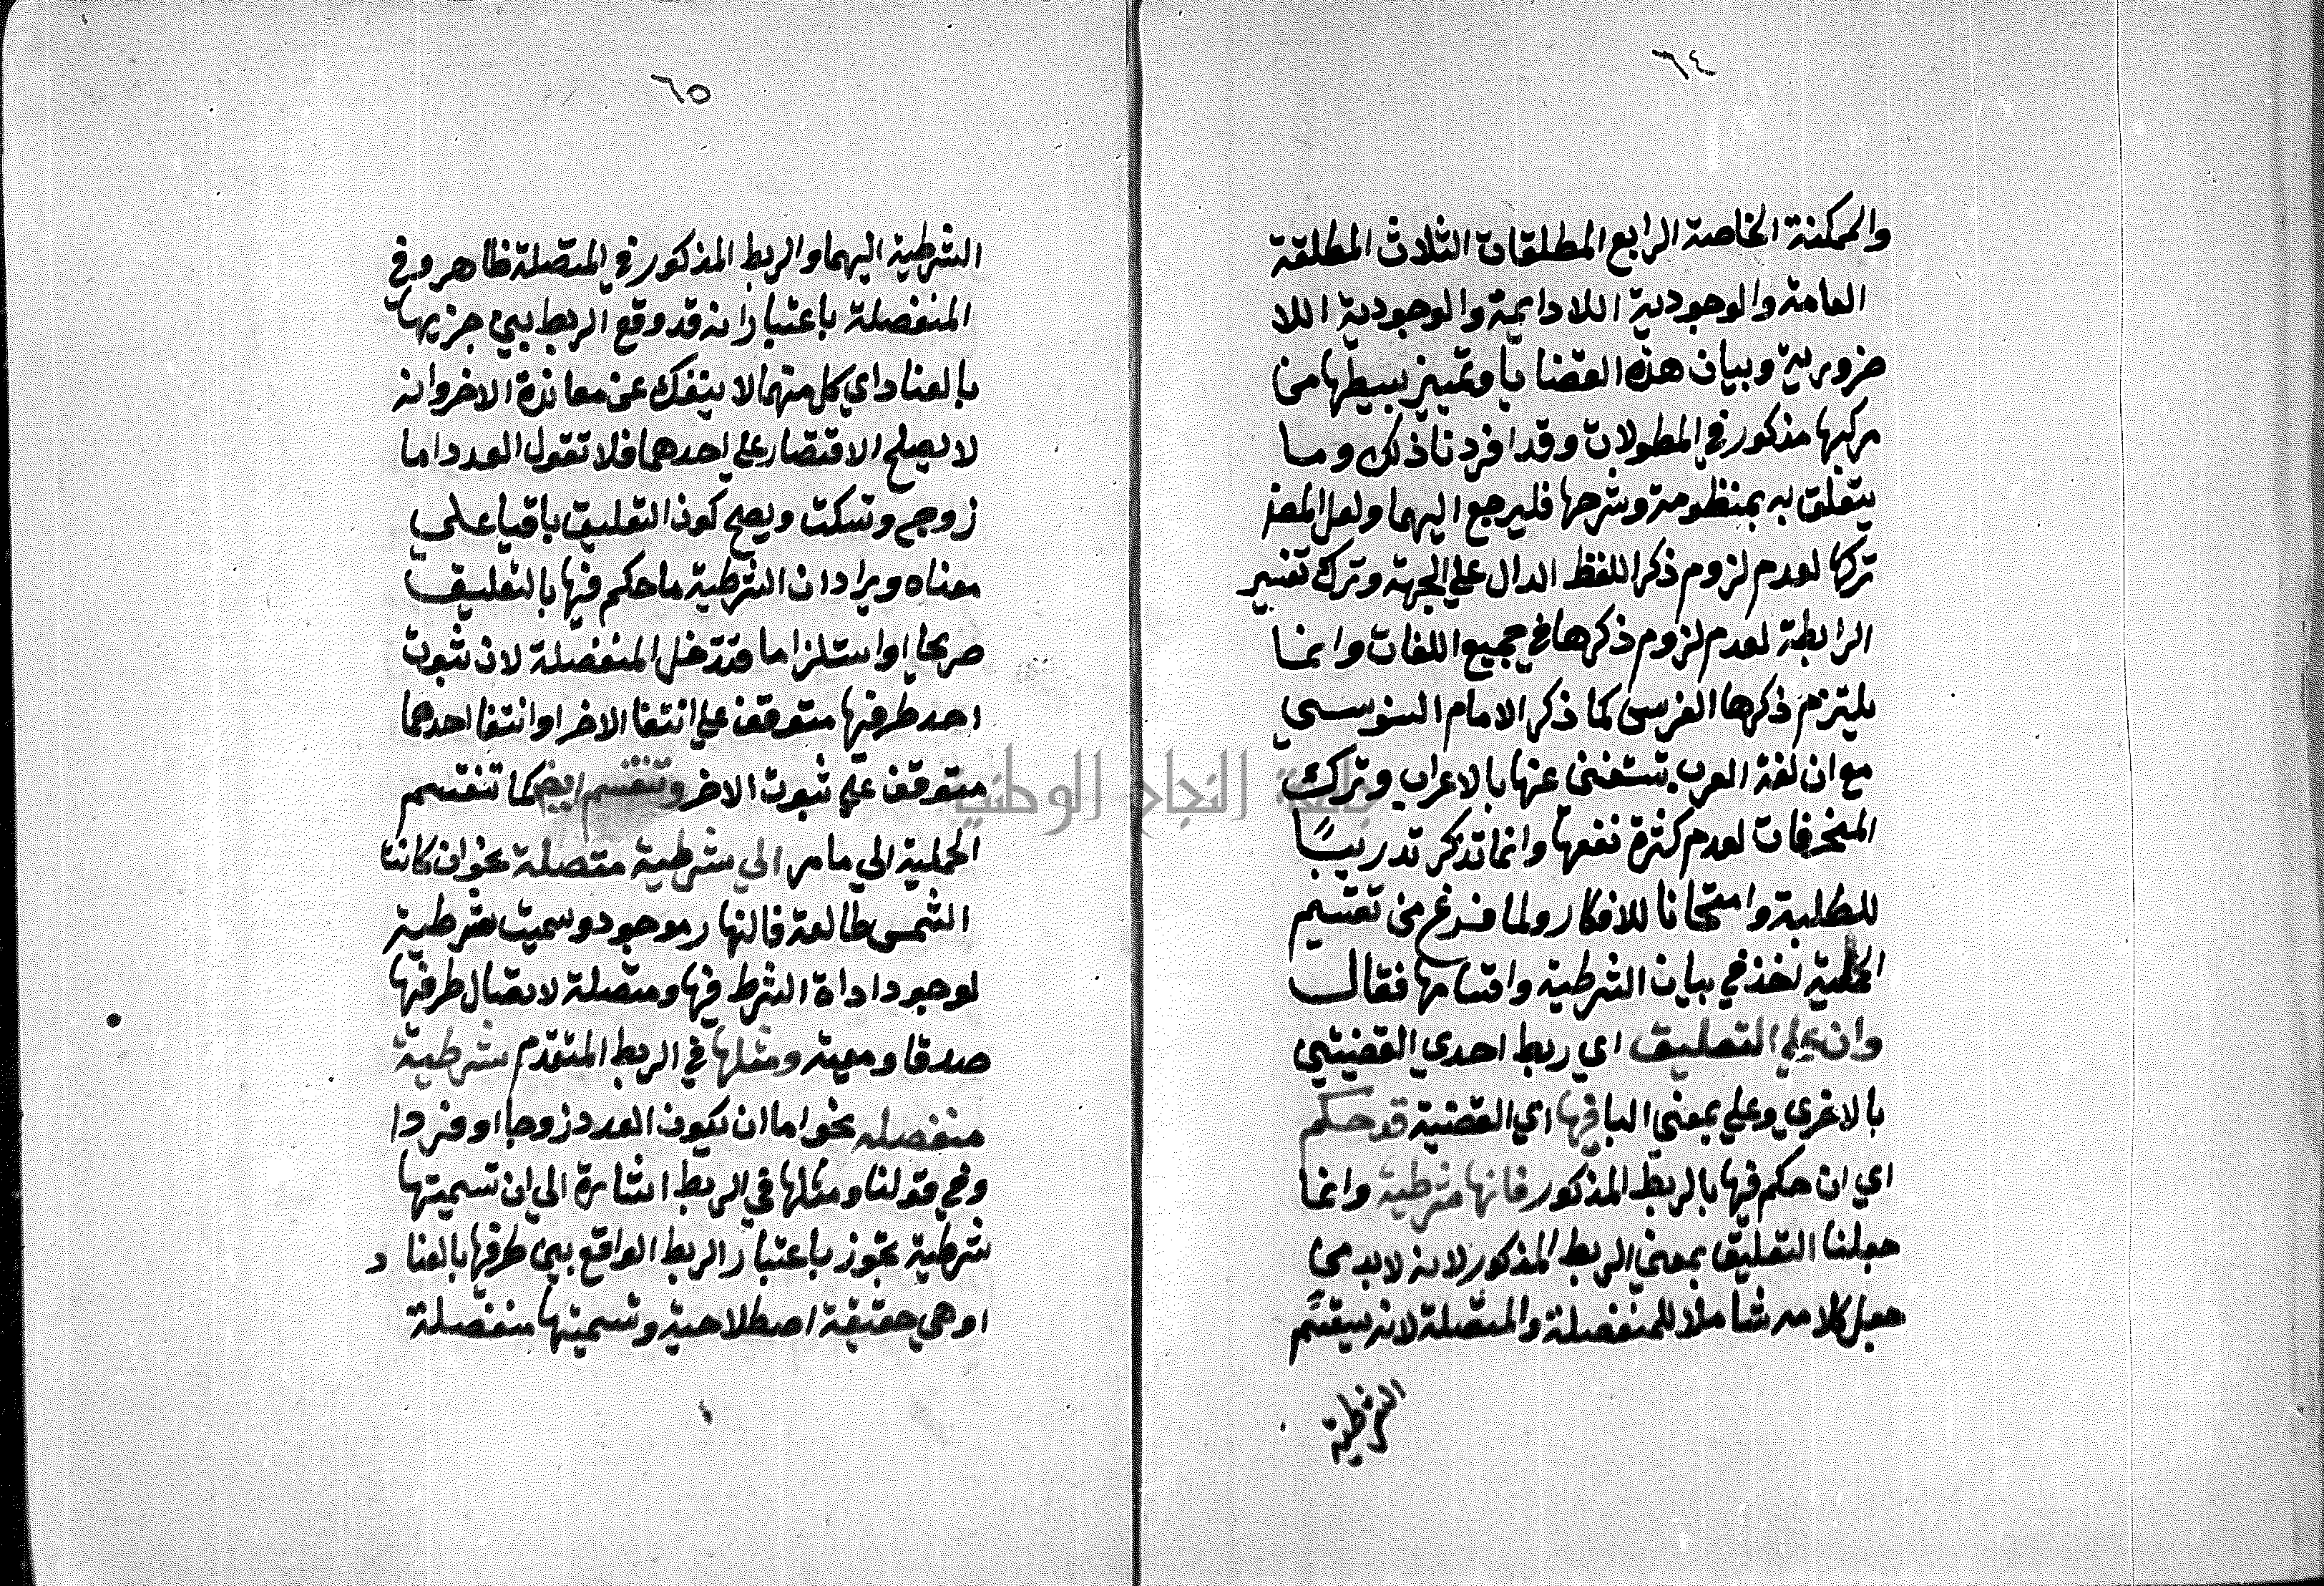 ٦٤
والممكنة الخاصة الرابع المطلقات الثلاث المطلقة
العامة والوجودية اللادايمة والوجودية اللا
ضرورية وبيان هذه القضايا وتمييز بسيطها من
مركبها مذكور في المطولات وقد افردنا ذلك وما
يتعلق به بمنظومة وشرحها فليرجع اليهما ولعل المص
تركها لعدم لزوم ذكر اللفظ الدال علي الجهة وترك تفسير
الرابطة لعدم لزوم ذكرها في جميع اللغات وانما
يلتزم ذكرها الفرسى كما ذكر الامام السنوسي
مع ان لغة العرب تستغنى عنها بالاعراب وترك
المنحرفات لعدم كثرة نفعها وانما تذكر تدريبًا
للطلبة وامتحانا للافكار ولما فرغ من تقسيم
الحملية اخذ في بيان الشرطية واقسامها فقال
وان علي التعليق اي ربط احدي القضيتين
بالاخري وعلي بمعني البا فيها اي القضية قد حكم
اي ان حكم فيها بالربط المذكور فانها شرطية وانما
جعلنا التعليق بمعني الربط المذكور لانه لا بد من
جعل كلامه شاملا للمنفصلة والمتصلة لانه سيقسم
الشرطية
٦٥
الشرطية اليهما والربط المذكور في المتصلة ظاهر وفي
المنفصلة باعتبار انه قد وقع الربط بين جزيها
بالعناد اي كل منهما لا ينفك عن معاندة الاخر وانه
لا يصلح الاقتصار علي احدهما فلا تقول العدد اما
زوج وتسكت ويصح كون التعليق باقيا علي
معناه ويراد ان الشرطية ما حكم فيها بالتعليق
صريحا او استلزاما فتدخل المنفصلة لان ثبوت
احد طرفيها متوقف علي انتفا الاخر او انتفا احدهما
متوقف علي ثبوت الاخر وتنقسم ايض كما تنقسم
الحملية الي ما مر الي شرطية متصلة نحو ان كانت
الشمس طالعة فالنهار موجود وسميت شرطية
لوجود اداة الشرط فيها ومتصلة لاتصال طرفيها
صدقا ومعية ومثلها في الربط المتقدم شرطية
منفصله نحو اما ان يكون العدد زوجا او فردا
وفي قولنا ومثلها في الربط اشارة الي ان تسميتها
شرطية تجوز باعتبار الربط الواقع بين طرفيها بالعناد
او هي حقيقة اصطلاحية وتسميتها منفصلة
جامعة النجاح الوطنية